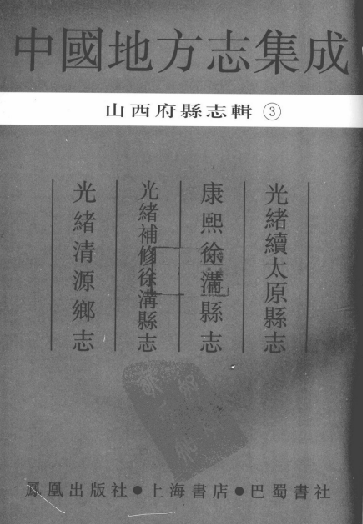 中國地方志集成
山西府縣志輯③
光緒續太原縣志
康熙徐溝縣志
光緒補修徐溝縣志
光緒清源鄉志
鳳凰出版社●上海書店●巴蜀書社